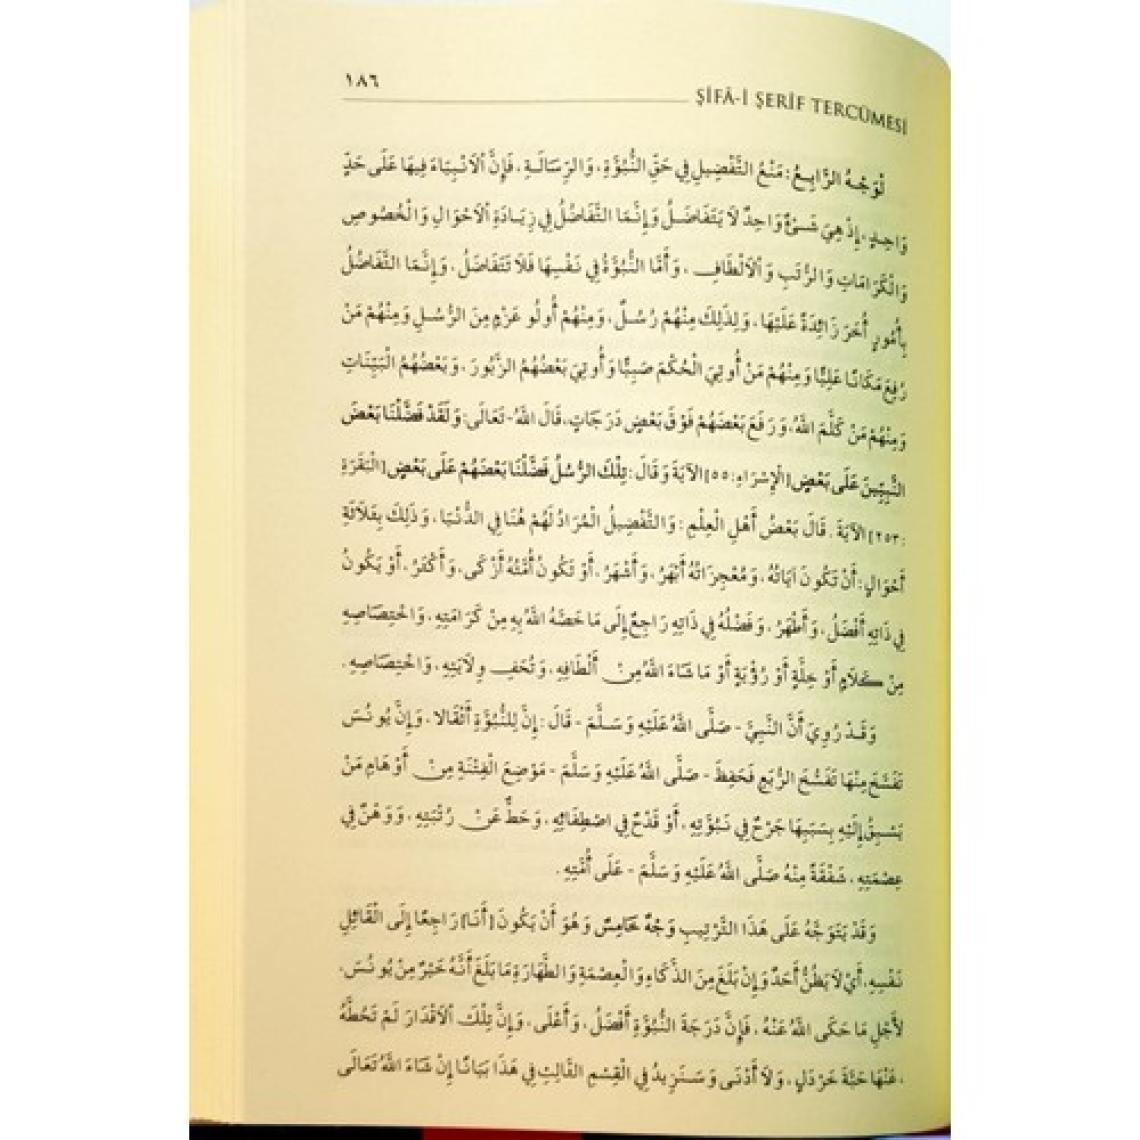 ١٨٦
ŞİFÂ-İ ŞERİF TERCÜMESİ
لْوَجْهُ الرَّابِعُ: مَنْعُ التَّفْضِيلِ فِي حَقِّ النُّبُوَّةِ، وَالرِّسَالَةِ، فَإِنَّ اْلاَنْبِيَاءَ فِيهَا عَلَى حَدٍّ
وَاحِدٍ، إِذْ هِيَ شَىْءٌ وَاحِدٌ لَا يَتَفَاضَلُ وَإِنَّمَا التَّفَاضُلُ فِي زِيَادَةِ اْلاَحْوَالِ وَالْخُصُوصِ
وَالْكَرَامَاتِ وَالرُّتَبِ وَاْلاَلْطَافِ، وَأَمَّا النُّبُوَّةُ فِي نَفْسِهَا فَلَا تَتَفَاضَلُ، وَإِنَّمَا التَّفَاضُلُ
بِأُمُورٍ أُخَرَ زَائِدَةٌ عَلَيْهَا، وَلِذَلِكَ مِنْهُمْ رُسُلٌ، وَمِنْهُمْ أُولُو عَزْمٍ مِنَ الرُّسُلِ وَمِنْهُمْ مَنْ
رُفِعَ مَكَانًا عَلِيًّا وَمِنْهُمْ مَنْ أُوتِيَ الْحُكْمَ صَبِيًّا وَأُوتِيَ بَعْضُهُمُ الزَّبُورَ، وَبَعْضُهُمُ الْبَيِّنَاتِ
وَمِنْهُمْ مَنْ كَلَّمَ اللهُ، وَرَفَعَ بَعْضَهُمْ فَوْقَ بَعْضٍ دَرَجَاتٍ، قَالَ اللهُ-تَعَالَى: وَلَقَدْ فَضَّلْنَا بَعْضَ
النَّبِيِّينَ عَلَى بَعْضٍ [الْإِسْرَاءِ: ٥٥] الآيَةَ وَقَالَ: تِلْكَ الرُّسُلُ فَضَّلْنَا بَعْضَهُمْ عَلَى بَعْضٍ [الْبَقَرَةِ
: ٢٥٣] الآيَةَ. قَالَ بَعْضُ أَهْلِ الْعِلْمِ: وَالتَّفْضِيلُ الْمُرَادُ لَهُمْ هُنَا فِي الدُّنْيَا، وَذَلِكَ بِثَلاَثَةِ
أَحْوَالٍ: أَنْ تَكُونَ آيَاتُهُ، وَمُعْجِزَاتُهُ أَبْهَرُ، وَأَشْهَرُ، أَوْ تَكُونُ أُمَّتُهُ أَزْكَى، وَأَكْثَرُ، أَوْ يَكُونُ
فِي ذَاتِهِ أَفْضَلُ، وَأَطْهَرُ، وَفَضْلُهُ فِي ذَاتِهِ رَاجِعٌ إِلَى مَا خَصَّهُ اللهُ بِهِ مِنْ كَرَامَتِهِ، وَاخْتِصَاصِهِ
مِنْ كَلَامٍ أَوْ خِلَّةٍ أَوْ رُؤْيَةٍ أَوْ مَا شَاءَ اللهُ مِنْ أَلْطَافِهِ، وَتُحَفِ وِلَايَتِهِ، وَاخْتِصَاصِهِ.
وَقَدْ رُوِيَ أَنَّ النَّبِيَّ - صَلَّى اللهُ عَلَيْهِ وَسَلَّمَ - قَالَ: إِنَّ لِلنُّبُوَّةِ أَثْقَالا، وَإِنَّ يُونُسَ
تَفَسَّخَ مِنْهَا تَفَسُّخَ الرُّبَعِ فَحَفِظَ - صَلَّى اللهُ عَلَيْهِ وَسَلَّمَ - مَوْضِعَ الْفِتْنَةِ مِنْ أَوْهَامِ مَنْ
يَسْبِقُ إِلَيْهِ بِسَبَبِهَا جَرْحٌ فِي نَبُوَّتِهِ، أَوْ قَدْحٌ فِي اصْطِفَائِهِ، وَحَطٌّ عَنْ رُتْبَتِهِ، وَوَهْنٌ فِي
عِصْمَتِهِ، شَفْقَةً مِنْهُ صَلَّى اللهُ عَلَيْهِ وَسَلَّمَ - عَلَى أُمَّتِهِ.
وَقَدْ يَتَوَجَّهُ عَلَى هَذَا التَّرْتِيبِ وَجْهٌ خَامِسٌ وَهُوَ أَنْ يَكُونَ [أَنَا] رَاجِعًا إِلَى الْقَائِلِ
نَفْسِهِ، أَيْ لَا يَظُنُّ أَحَدٌ وَإِنْ بَلَغَ مِنَ الذَّكَاءِ وَالْعِصْمَةِ وَالطَّهَارَةِ مَا بَلَغَ أَنَّهُ خَيْرٌ مِنْ يُونُسَ،
لِأَجْلِ مَا حَكَى اللهُ عَنْهُ، فَإِنَّ دَرَجَةَ النُّبُوَّةِ أَفْضَلُ، وَأَعْلَى، وَإِنَّ تِلْكَ اْلاَقْدَارَ لَمْ تَحُطَّهُ
، عَنْهَا حَبَّةَ خَرْدَلٍ، وَلَا أَدْنَى وَسَنَزِيدُ فِي الْقِسْمِ الثَّالِثِ فِي هَذَا بَيَانًا إِنْ شَاءَ اللهُ تَعَالَى